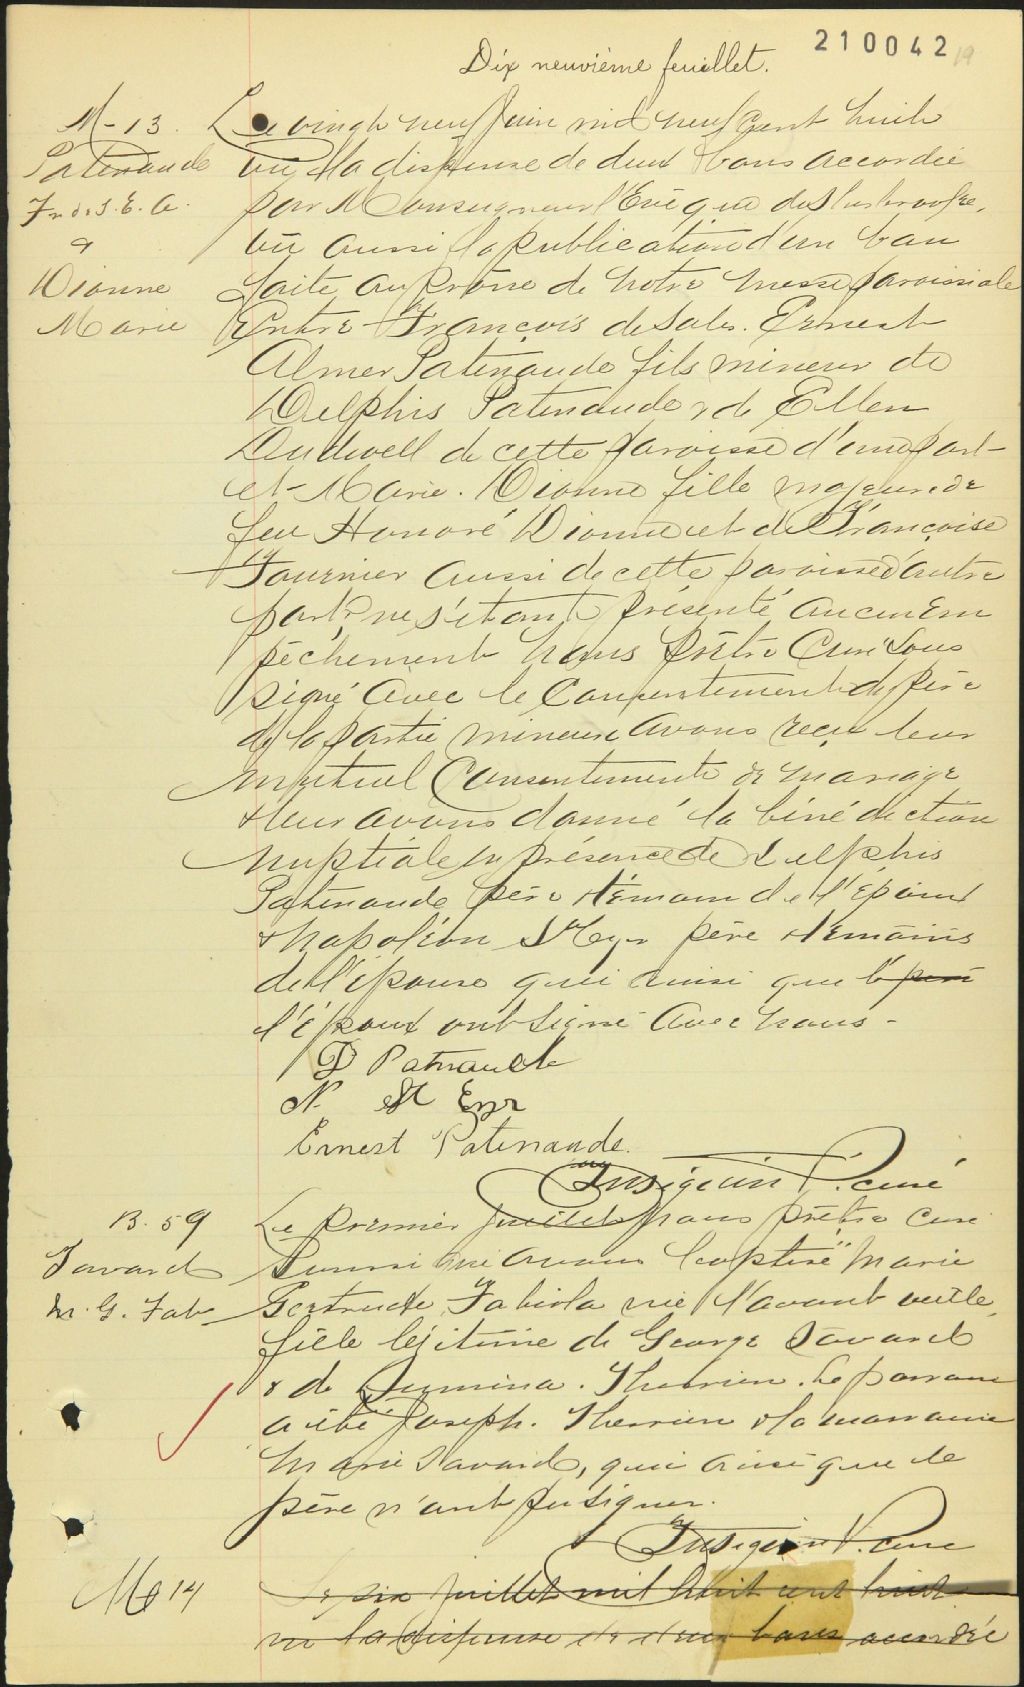 210042 19
Dix neuvième feuillet.
M-13.
Patenaude
Frs d. S. E. A.
&
Dionne
Marie
Le vingt neuf Juin mil neuf cent huit
vu la dispense de deux bans accordée
par Monseigneur l'Evêque de Sherbrooke,
vu aussi la publication d'un ban
faite au prône de notre messe paroissiale
Entre François de Sales. Ernest
Almer Patenaude fils mineur de
Delphis Patenaude & de Ellen
de cette paroisse d'une part
et Marie. Dionne fille majeure de
feu Honoré Dionne et de Françoise
Fournier aussi de cette paroisse d'autre
part ne s'étant présenté aucun em
pêchement Nous prêtre Curé Sous
signé avec le Consentement du père
de la partie mineure avons reçu leur
mutuel Consentement de mariage
& leur avons donné la bénédiction
nuptiale en présence de Delphis
Patenaude père témoin de l'époux
& Napoléon St Cyr père témoins
de l'épouse qui ainsi que le père
l'époux ont signé avec nous -
D Patenaude
N. St Cyr
Ernest Patenaude.
P. curé
B. 59
Savard
M. G. Fab
Le premier juillet nous prêtre curé
soussigné avons baptisé Marie
Gertrude Fabiola née l'avant veille,
fille légitime de George Savard
& de Therrien. Le parrain
a été Joseph. Therrien & la marraine
Marie Savard, qui ainsi que le
père n'ont pu signer.
P. curé
M 14
Le six juillet mil huit cent huit
vu la dispense de deux bans accordée